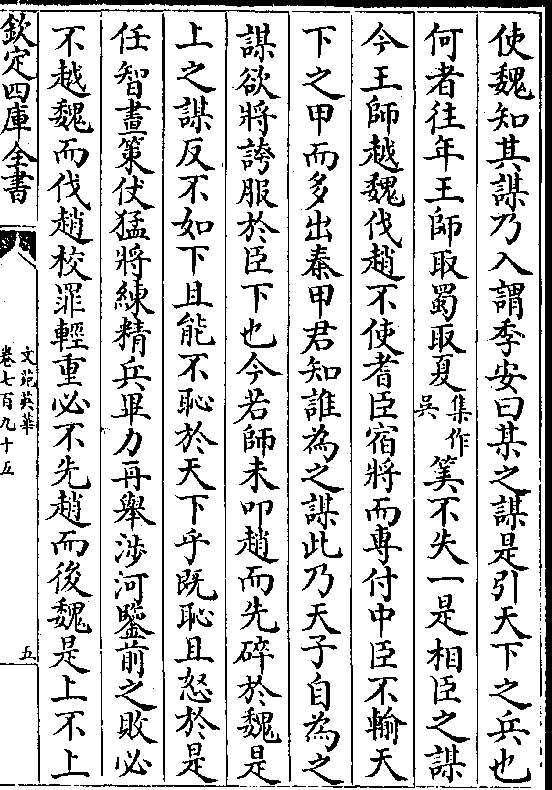 使魏知其謀乃入謂季安曰某之謀是引天下之兵也
何者往年王師取蜀取夏集作吳筭不失一是相臣之謀
今王師越魏伐趙不使耆臣宿將而專付中臣不輸天
下之甲而多出秦甲君知誰為之謀此乃天子自為之
謀欲將誇服於臣下也今若師未叩趙而先碎於魏是
上之謀反不如下且能不恥於天下乎既恥且怒於是
任智畫策仗猛將練精兵畢力再舉涉河鑒前之敗必
不越魏而伐趙校罪輕重必不先趙而後魏是上不上
欽定四庫全書
文苑英華
卷七百九十五
五